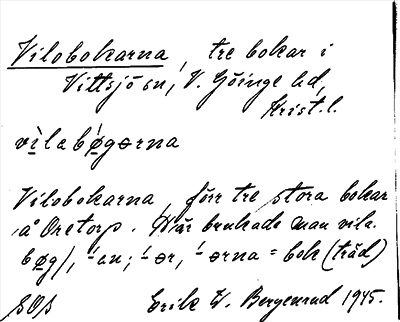 Vilobokarna, tre bokar i
Vittsjö sn, V. Göinge hd,
Krist. l.
vilabøgərna
Vilobokarna, förr tre stora bokar
å Oretorp. Där brukade man vila.
bøg/, -́en; -́ər, -́ərna = bok (träd)
Erik W. Bergenrud 1945.